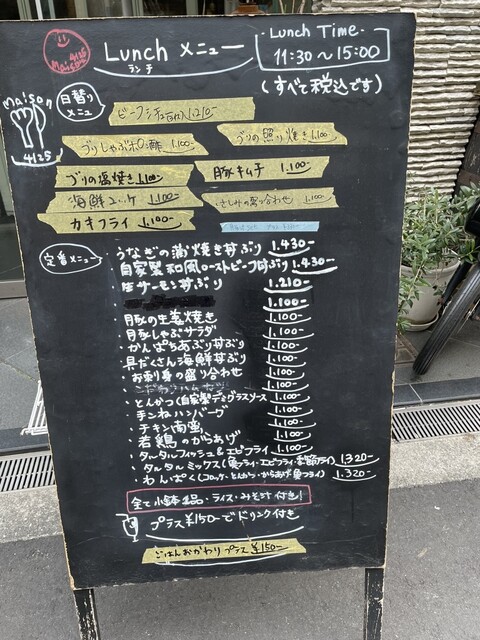 Lunch メニュー
ランチ
Lunch Time
11:30～15:00
(すべて税込です)
maison
4125
日替り
メニュー
ビーフシチュー 1,210-
ブリしゃぶポン酢 1,100-
ブリの照り焼き 1,100-
ブリの塩焼き 1,100-
豚キムチ 1,100-
海鮮ユッケ 1,100-
さしみの盛り合わせ 1,100-
カキフライ 1,100-
定番メニュー
・うなぎの蒲焼き丼ぶり 1,430-
・自家製和風ローストビーフ丼ぶり 1,430-
・生サーモン丼ぶり 1,210-
1,100-
・豚の生姜焼き 1,100-
・豚しゃぶサラダ 1,100-
・かんぱちあぶり丼ぶり 1,100-
・具だくさん海鮮丼ぶり 1,100-
・お刺身の盛り合わせ 1,100-
1,100-
・とんかつ(自家製デミグラスソース 1,100-
・手ごねハンバーグ 1,100-
・チキン南蛮 1,100-
・若鶏のからあげ 1,100-
・タルタルフィッシュ&エビフライ 1,100-
・タルタルミックス(魚フライ・エビフライ・ 1,320-
・わんぱく(コロッケ・とんかつ・からあげ・魚フライ) 1,320-
全て小鉢2品・ライス・みそ汁付き!
プラス¥150-でドリンク付き
ごはんおかわり プラス ¥150-